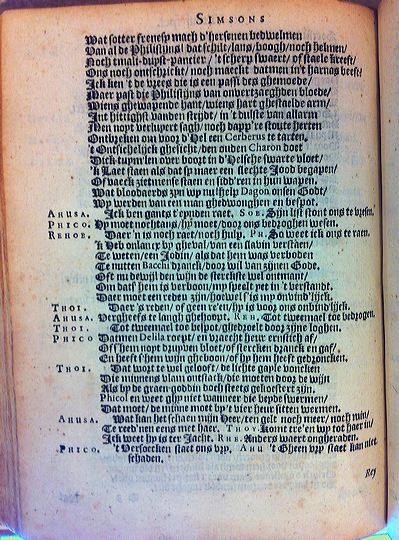 SIMSONS
Wat sotter frenesy mach d'hersenen bedwelmen
Van al de Philistijns! dat schilt/lans/boogh/noch helmen/
Noch mali-dupst-pantcier/'t scherp swaert/of staele kreeft/
Ons noch ontschrickt/noch maeckt datmen in't harnas beeft/
Ick ken 't de vrees dit is een passi des ghemoede/
Maer past die Philistijns van onvertzaeghden bloede/
Wiens ghewapende hant/wiens hart ghestaelde arm/
Int hittighst vanden strijdt/in 't duiste van allarm
Men noyt verlupert sagh/noch dapp're stoute herten
Ontbreken om voor d'Hel een Cerberus te tarten,
't Ontsichelijck ghesicht/den ouden Charon doet
Dick tuym'len over boort in d'Helsche swarte vloet/
'k Laet staen als dat sp maer een slechte Jood begapen/
Of vaeck zitmense staen en sidd'ren in hun wapen.
Wy bloodaerds zyn wp nu hulp Dagon onsen Godt/
Wy werden van een man ghedwonghen en bespot.
AHUSA. Ick ben gants t'eynden raet. SOB. Sijn list stont ons te vresen.
PHICO. Hy moet nochtans/hy moet/door ons bedroghen wesen.
REHOB. Daer 'n is noch raet/noch hulp. PH. So weet ick ons te raen.
'k Heb onlancx by gheval/van een slavin verstaen/
Te weten/een Jodin/als dat hem was verboden
Te nutten Bacchi dranck/door wil van zijnen Gode.
Oft nu dewijl den wijn de sterckste wel ontmant/
Om datse hem is verboon/my speelt yet in 't verstandt.
Daer moet een reden zijn/hoewel s'is my onvind'lijck.
THOI. Daer 's reden/of geen re'en/hy is voor ons onbind'lijck.
AHUSA. Vergheefs te langh ghehoopt. REH. Tot tweemael toe bedrogen.
THOI. Tot tweemael toe bespot/ghedroelt door zijne loghen.
PHICO Damen Delila roept/en vraecht herr ernstich af/
Of s'hem noyt druyven bloet/of stercken dranck en gaf/
En heeft s'hem wijn gheboon/of hy hem heeft gedroncken.
THOI. Dat wort te wel gelooft/de lichte gayle voncken
Die minnens vlam ontstack/die moeten door de wijn
Als by de graen-goddin doch steets gekoestert zijn.
Phicol en weet ghy niet wanneer die beyde swermen/
Dat moet/de minne moet by't vier heur sitten wermen.
AHUSA. Wat kan het schaen mijn Heer/ten gelt noch meer/noch min/
Te rede'nen eens met haer. THOY. komt tre'en wy tot haer in/
Ick weet hy is ter Jacht. REH. Anders waert ongheraden.
PHICO. 't Versoecken staet ons vry. AHU 't Gheen vry staet kan niet
schaden.
Rey